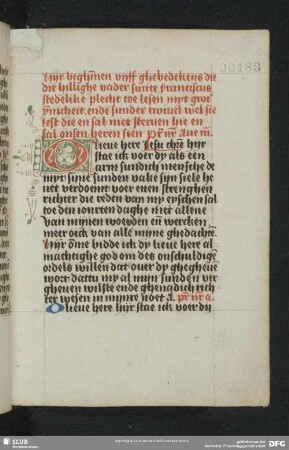 00183
Hijr beghīnen vijff ghebedekens die
die hillighe vader sunte franciscus
stedelike plecht toe lesen myt grot
īnicheit. ende sunder twiuel wel sie
lest die en sal niet steruen hie en
sal onsen heren sien Pr̄ nr̄ Aue m̄.
O lieue here Iesu chr̄e hijr
stae ick voer dy als een
arm sundich mensche de
myt sijne sunden vake sijn siele he
uet verdoemt voer enen strenghen
richter die reden van my eysschen sal
toe den ioncten daghe niet allene
van mynen woerden eñ wercken
meer oeck van alle mijne ghedachtē
hijr ōme bidde ick dy lieue here al
machtighe god om des onschuldigē
ordels willen dat ouer dy ghegheue
wort dattu my al myn sunden vr
gheuen wilste ende ghenadich rich
ter wesen in mijnre noet A. pr̄ nr̄ a
O lieue here hijr stae ick voer dy
SLUB
Wir führen Wissen.
gefördert von der
Deutschen Forschungsgemeinschaft
DFG